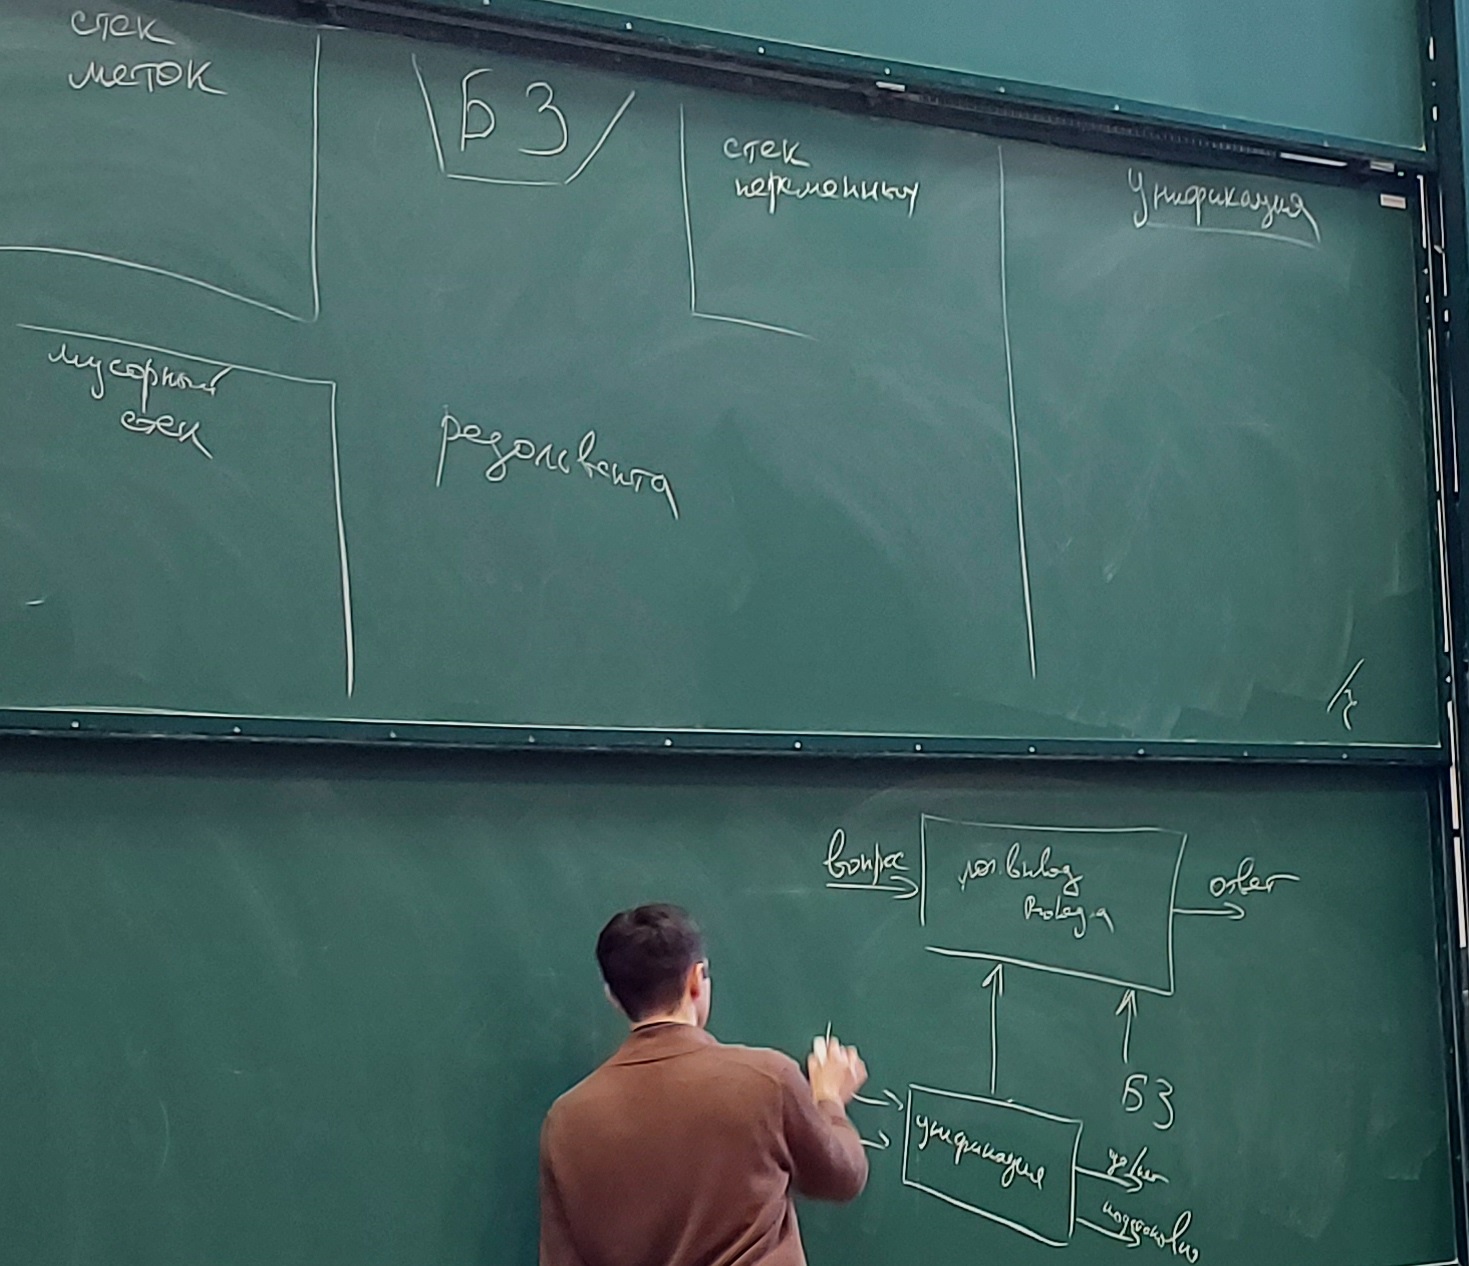 стек
меток
БЗ
стек
переменных
Унификация
мусорный
стек
резольвента
вопрос
лог. вывод
Prolog-а
ответ
БЗ
унификация
да/нет